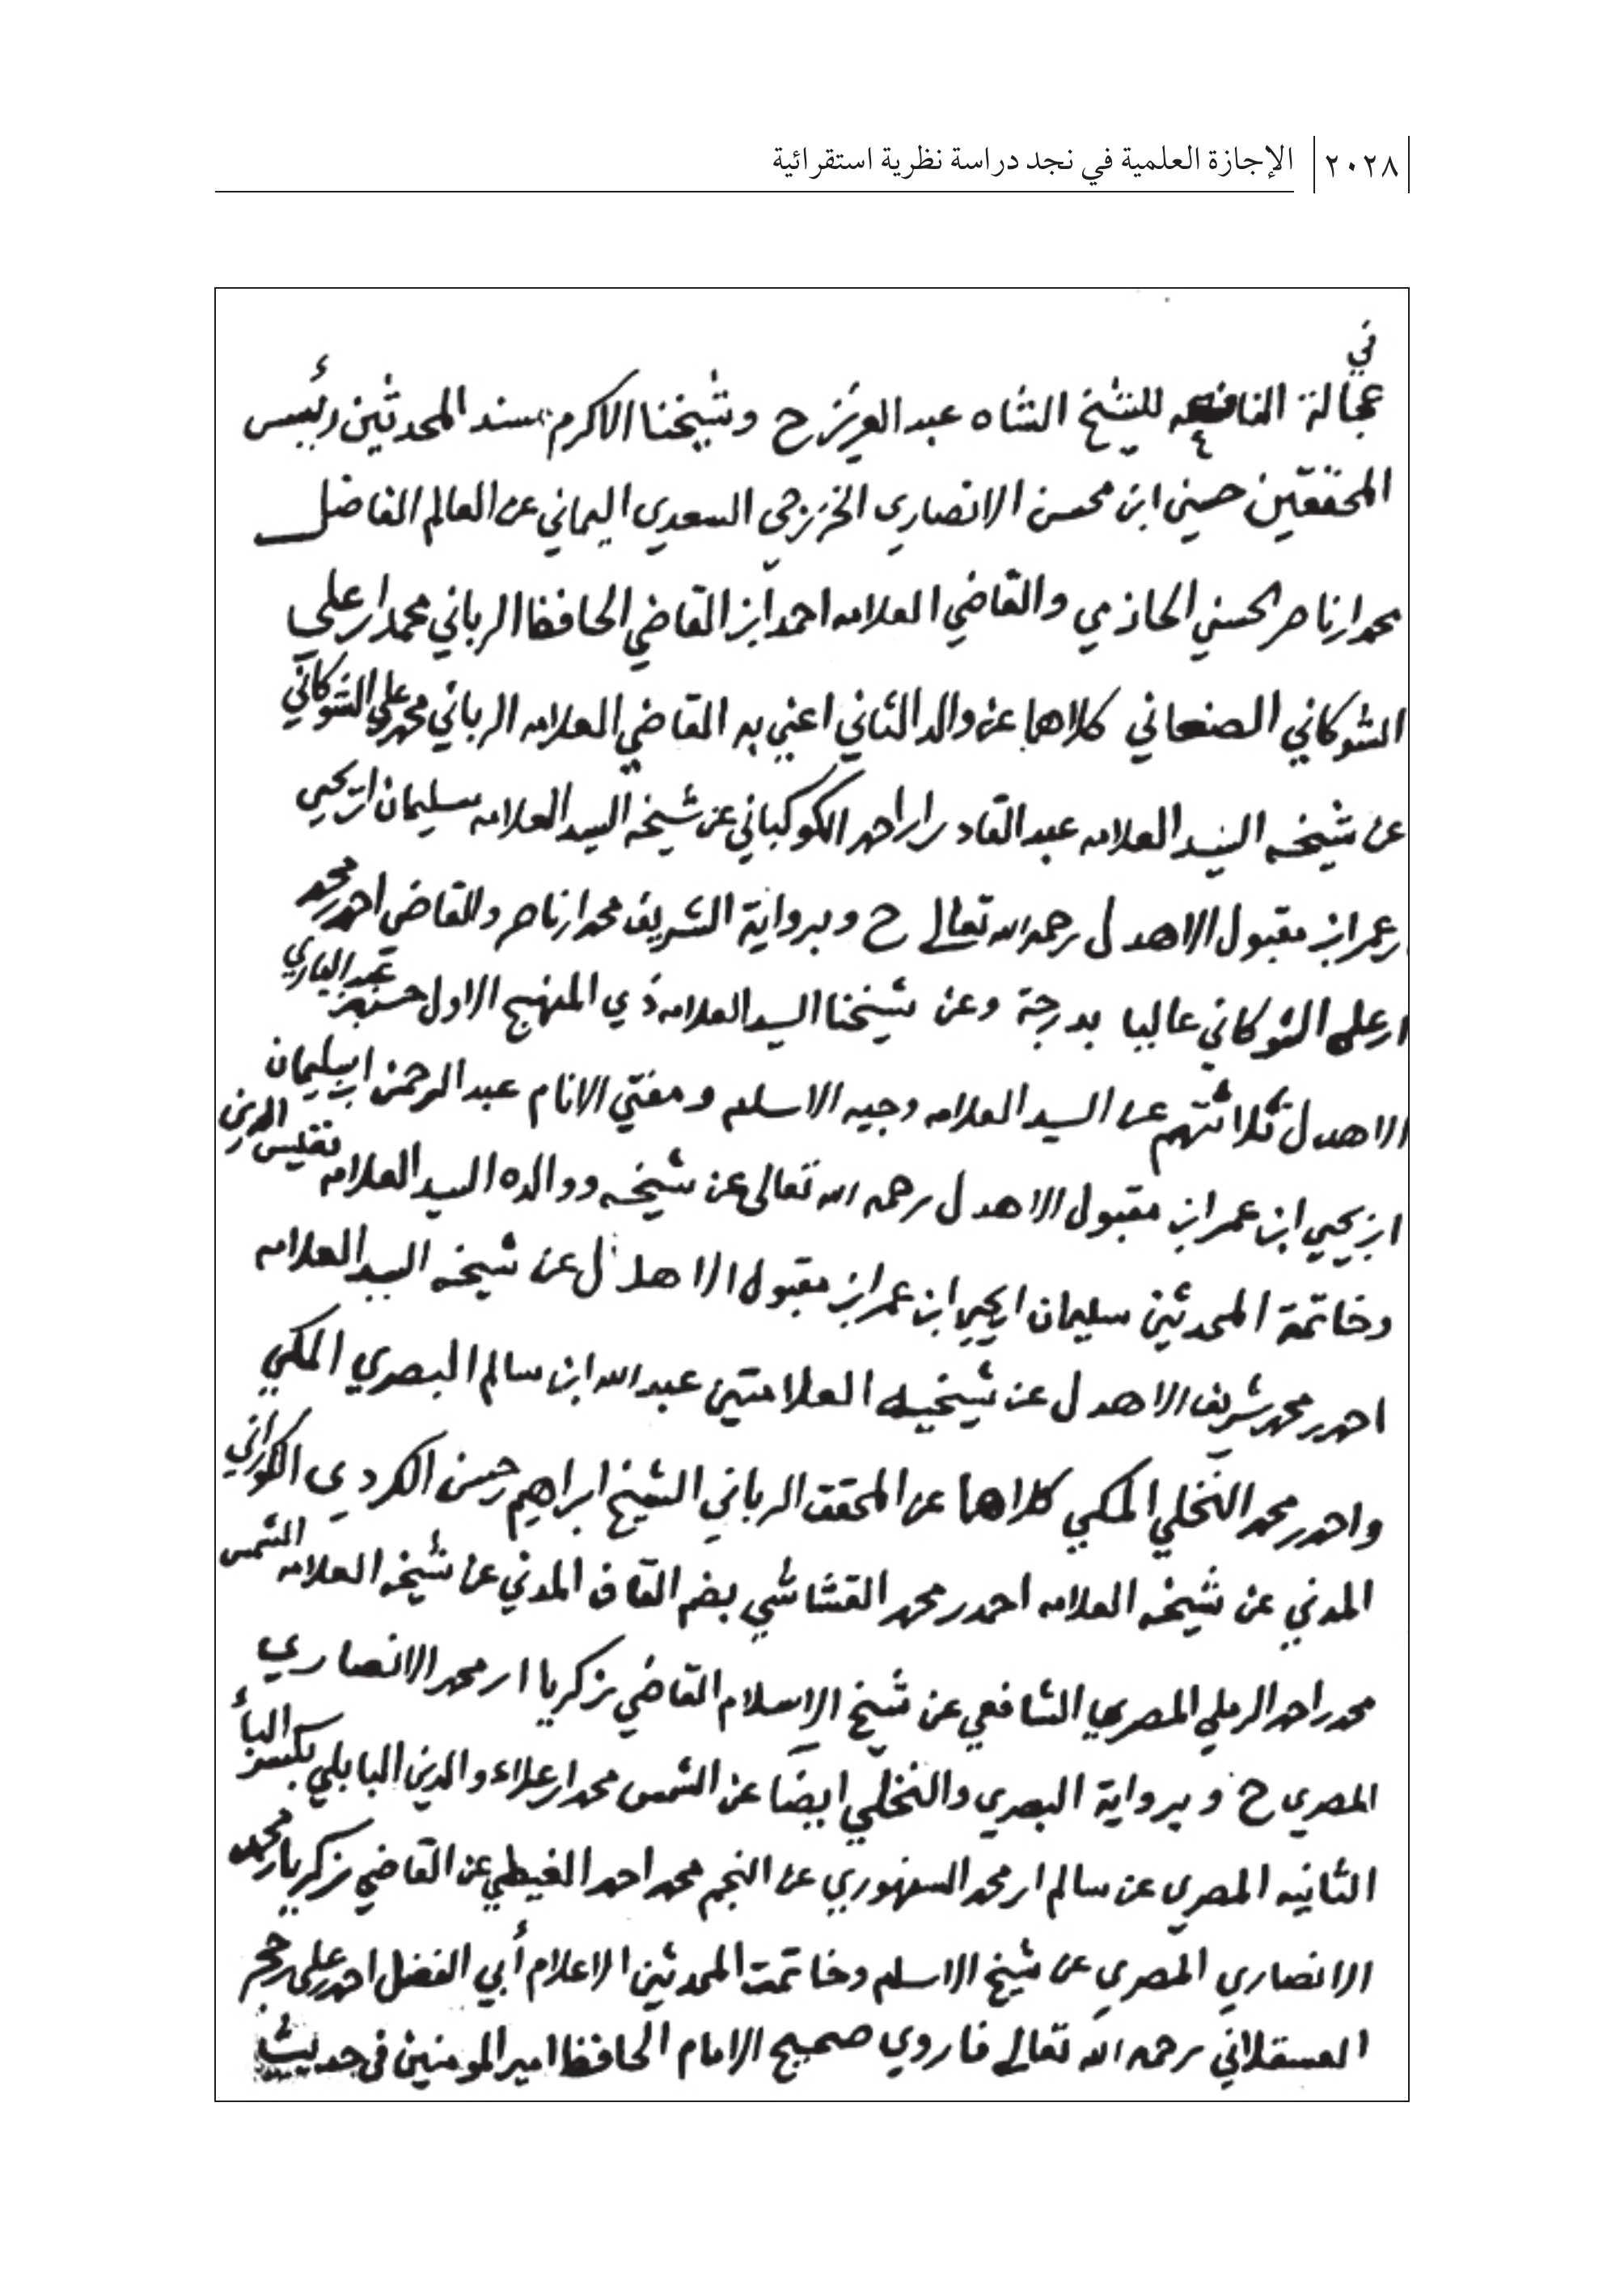 ٢٠٢٨ الإجازة العلمية في نجد دراسة نظرية استقرائية
في
عجالة النافعه للشيخ الشاه عبد العزيز ح وشيخنا الاكرم سند المحدثين رئيس
المحققين حسين ابن محسن الانصاري الخزرجي السعدي اليماني عن العالم الفاضل
محمد ابن ناصر الحسني الحاذمي والقاضي العلامه احمد ابن القاضي الحافظ الرباني محمد ابن علي
الشوكاني الصنعاني كلاهما عن والد الثاني اعني به القاضي العلامه الرباني محمد علي الشوكاني
عن شيخه السيد العلامه عبد القادر ابن احمد الكوكباني عن شيخه السيد العلامه سليمان ابن يحيى
بن عمر ابن مقبول الاهدل رحمه الله تعالى ح وبرواية الشريف محمد ابن ناصر والقاضي احمد بن محمد
ابن علي الشوكاني عاليا بدرجة وعن شيخنا السيد العلامه ذي المنهج الاول حسن بن عبد الباري
الاهدل ثلاثتهم عن السيد العلامه وجيه الاسلام ومفتي الانام عبد الرحمن ابن سليمان
ابن يحيى ابن عمر ابن مقبول الاهدل رحمه الله تعالى عن شيخه ووالده السيد العلامه نفيس الدين
وخاتمة المحدثين سليمان ابن يحيى ابن عمر ابن مقبول الاهدل عن شيخه السيد العلامه
احمد بن محمد شريف الاهدل عن شيخيه العلامتين عبد الله ابن سالم البصري المكي
واحمد بن محمد النخلي المكي كلاهما عن المحقق الرباني الشيخ ابراهيم بن حسن الكردي الكوراني
المدني عن شيخه العلامه احمد بن محمد القشاشي بضم القاف المدني عن شيخه العلامه الشمس
محمد بن احمد الرملي المصري الشافعي عن شيخ الاسلام القاضي زكريا ابن محمد الانصاري
المصري ح وبرواية البصري والنخلي ايضا عن الشمس محمد ابن علاء والدين البابلي بكسر البأ
الثانيه المصري عن سالم ابن محمد السنهوري عن النجم محمد احمد الغيطي عن القاضي زكريا بن محمد
الانصاري المصري عن شيخ الاسلام وخاتمت المحدثين الاعلام أبي الفضل احمد بن علي بن حجر
العسقلاني رحمه الله تعالى فاروي صحيح الامام الحافظ امير المومنين في حديث